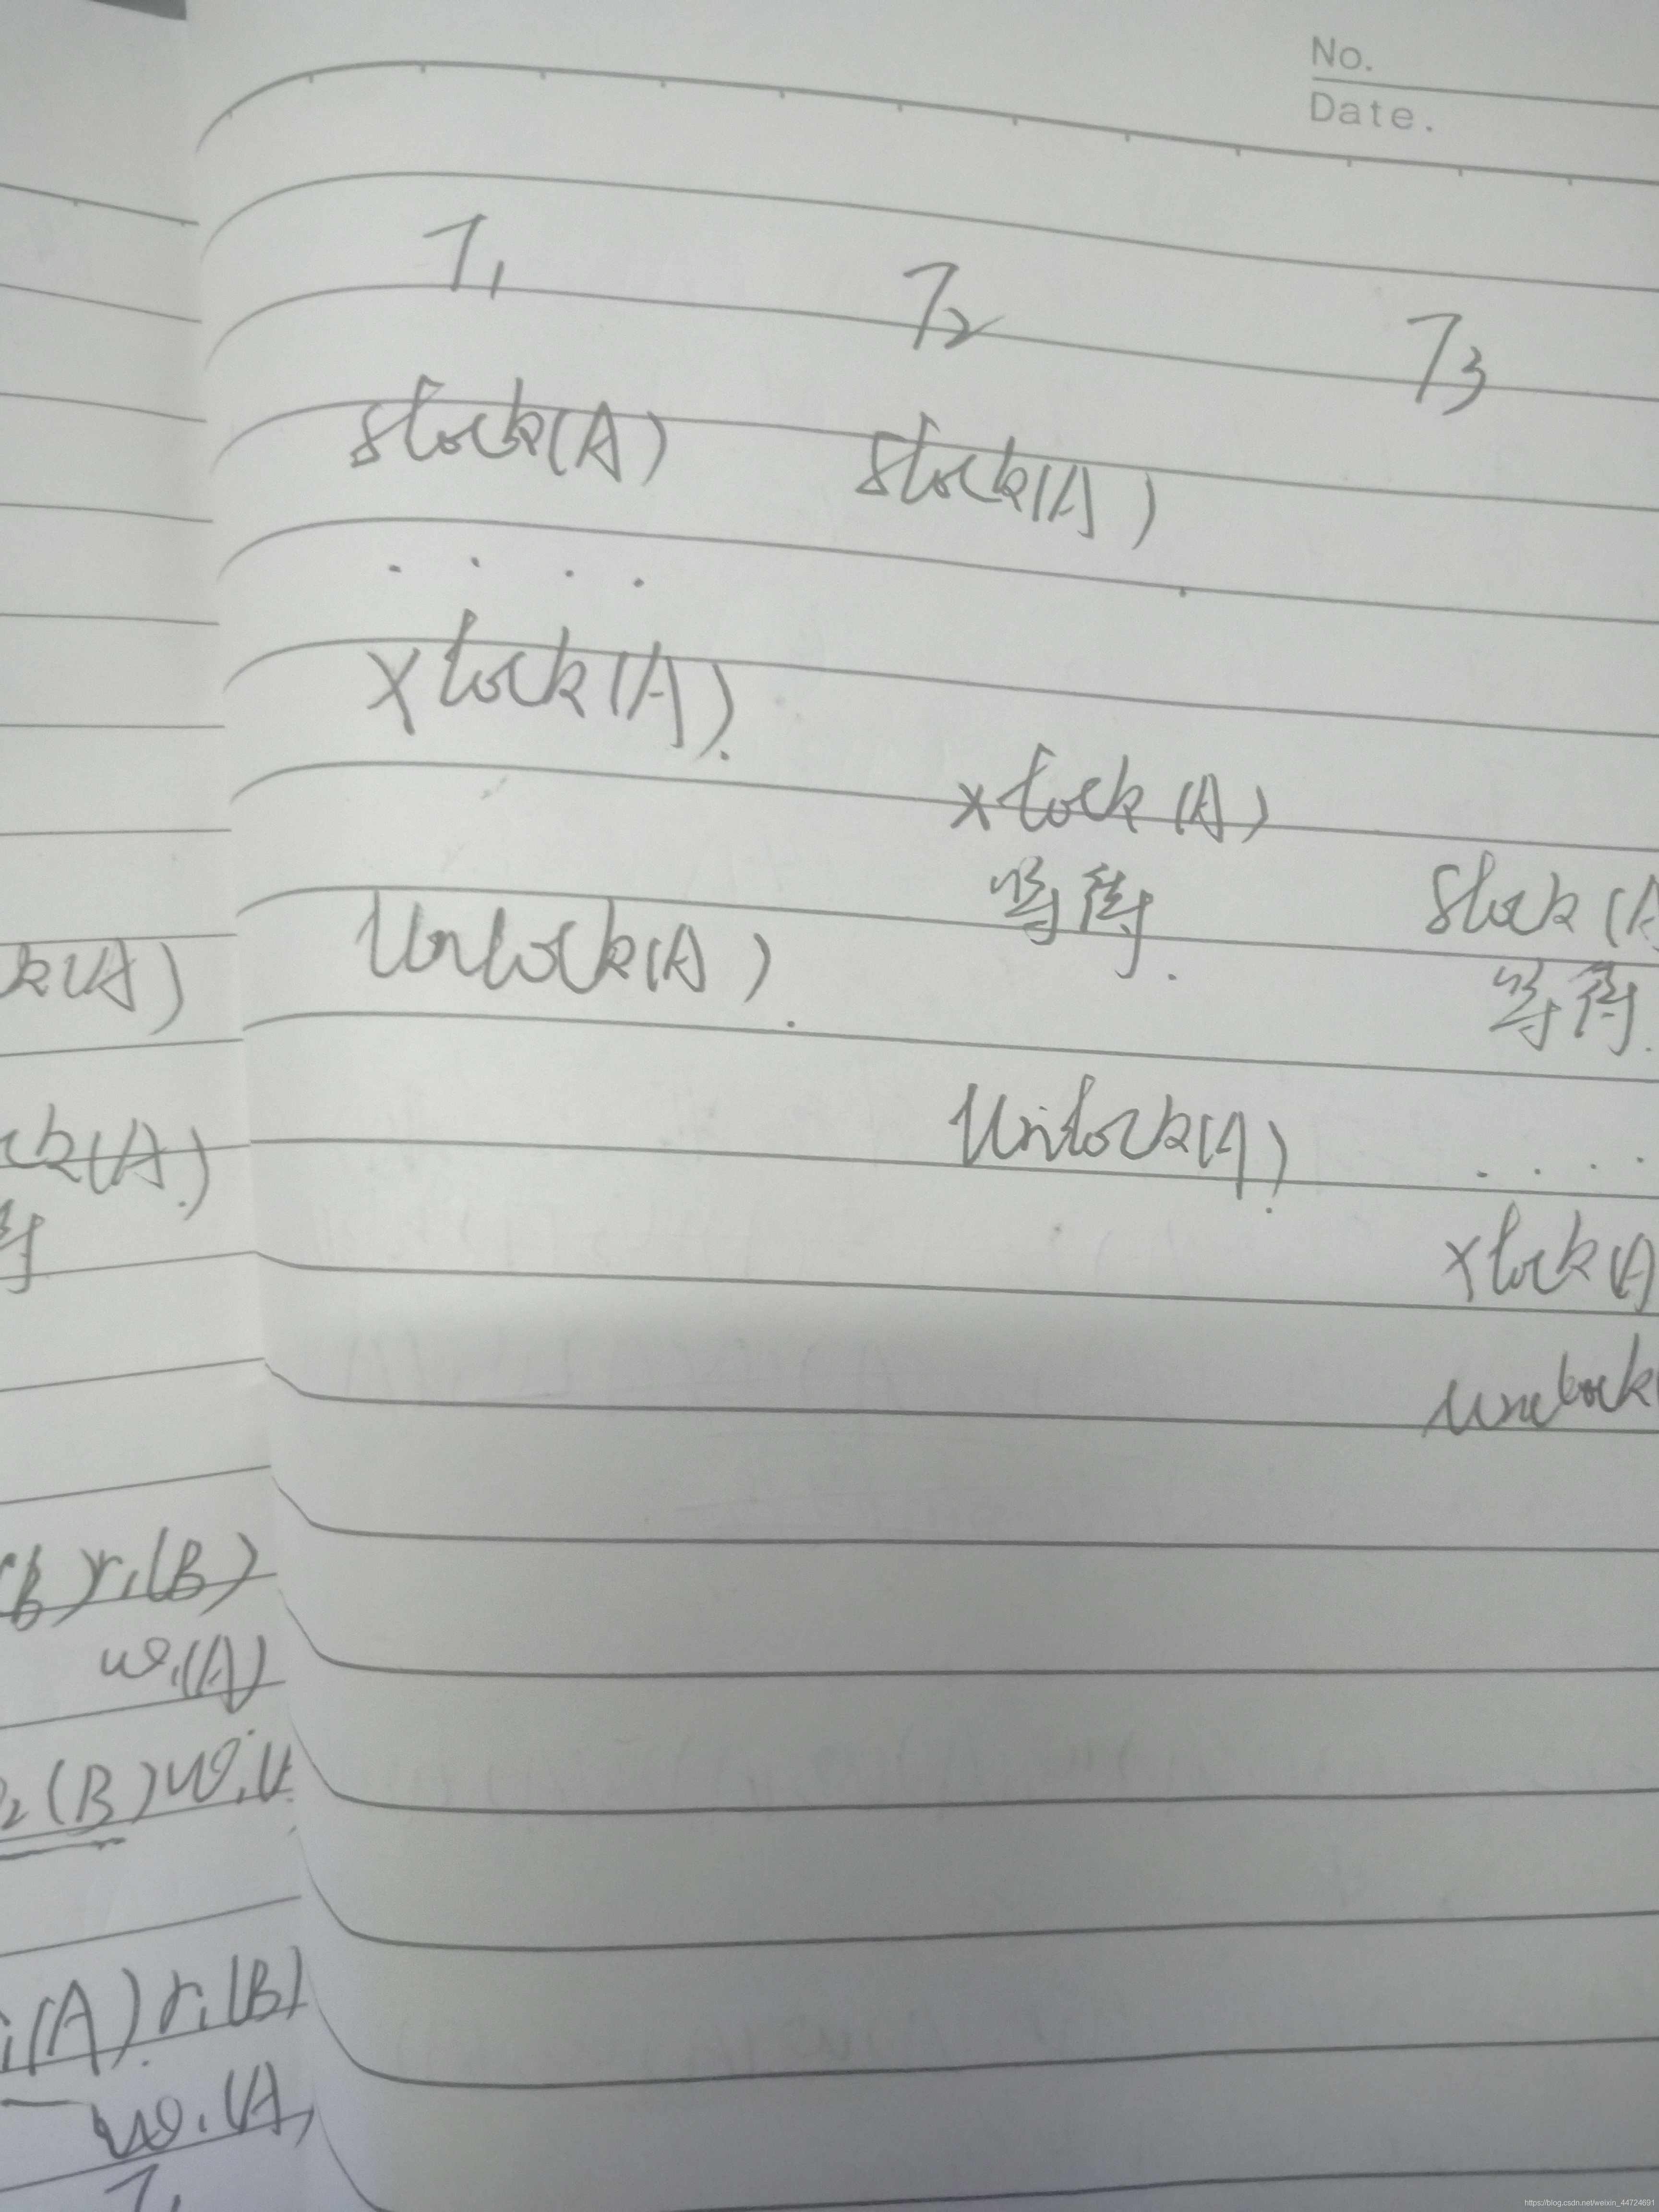 No.
Date.
T1 T2 T3
Slock(A) Slock(A)
....
Xlock(A).
Xlock(A)
等待. Slock(A
Unlock(A). 等待.
Unlock(A). ....
Xlock(A)
Unlock(
k(A)
ck(A).
待
(B)r1(B)
w1(A)
2(B)w1(
1(A).r1(B)
w1(A)
T1
https://blog.csdn.net/weixin_44724691